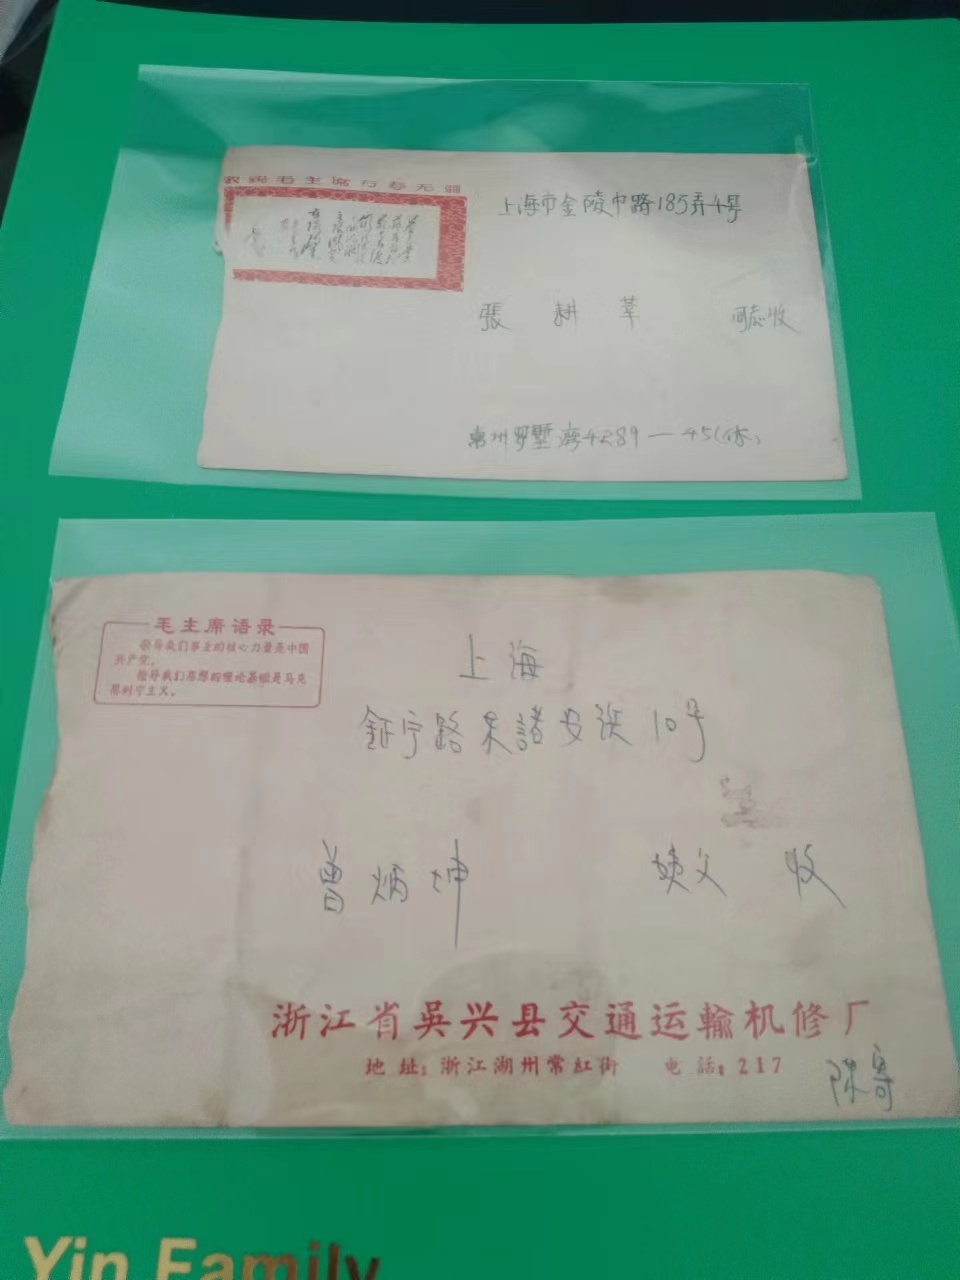 敬祝毛主席万寿无疆
上海市金陵中路185弄4号
張耕莘 同志收
常州罗墅湾4289—45(依)
毛主席语录
领导我们事业的核心力量是中国
共产党。
指导我们思想的理论基础是马克
思列宁主义。
上海
路朱諸安浜10号
曾炳坤 姨父 收
浙江省吳兴县交通运輸机修厂
地址:浙江湖州常紅街 电話:217
陈寄
Yin Family